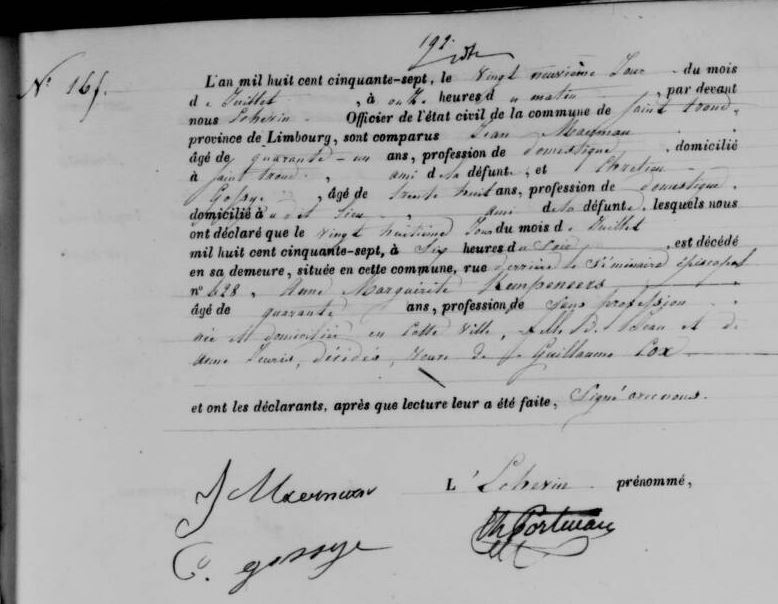 192.
N° 165.
L'an mil huit cent cinquante-sept, le vingt neuvième Jour du mois
de Juillet, à onze heures du matin, par devant
nous Echevin Officier de l'état civil de la commune de saint trond,
province de Limbourg, sont comparus Jean
âgé de quarante-un ans, profession de domestique domicilié
à saint trond, ami de la défunte, et Chretien
Gossye, âgé de trente huit ans, profession de domestique.
domicilié à u dit lieu, ami de la défunte. lesquels nous
ont déclaré que le vingt huitième Jour du mois de Juillet
mil huit cent cinquante-sept, à Six heures du Soir, est décédé
en sa demeure, située en cette commune, rue derrière le Séminaire épiscopal
n° 628, Anne Marguérite Kempeneers
âgé de quarante ans, profession de Sans profession
née et domiciliée en Cette Ville, fille de Jean et de
Anne décédés, Veuve de Guillaume Cox
et ont les déclarants, après que lecture leur a été faite, Signé avec nous.
L'Echevin prénommé,
J
C. gossye